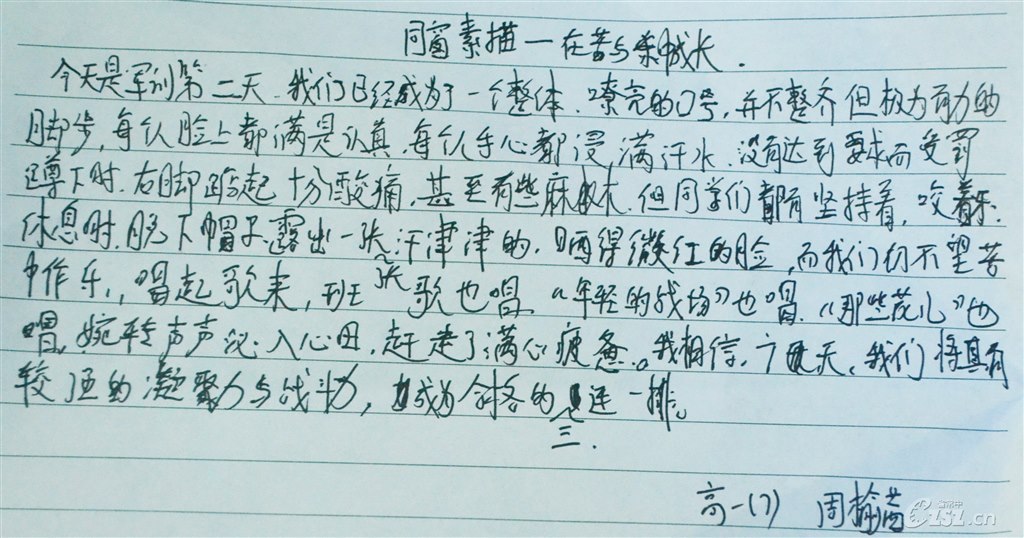 同窗素描一在苦与乐中成长.
今天是军训第二天.我们已经成为了一个整体.嘹亮的口号,并不整齐但极为有力的
脚步,每个人脸上都满是认真,每个人手心都浸满汗水.没有达到要求而受罚
蹲下时.右脚踮起十分酸痛,甚至有些麻木.但同学们都有坚持着,咬着牙.
休息时,脱下帽子露出一张张汗津津的,晒得微红的脸,而我们仍不望苦
中作乐,唱起歌来,班歌也唱.《年轻的战场》也唱.《那些花儿》也
唱.婉转声声沁入心田,赶走了满心疲惫。我相信,7天,我们将具有
较强的凝聚力与战斗力,成为合格的三连一排。
高一(7) 周
151.cn